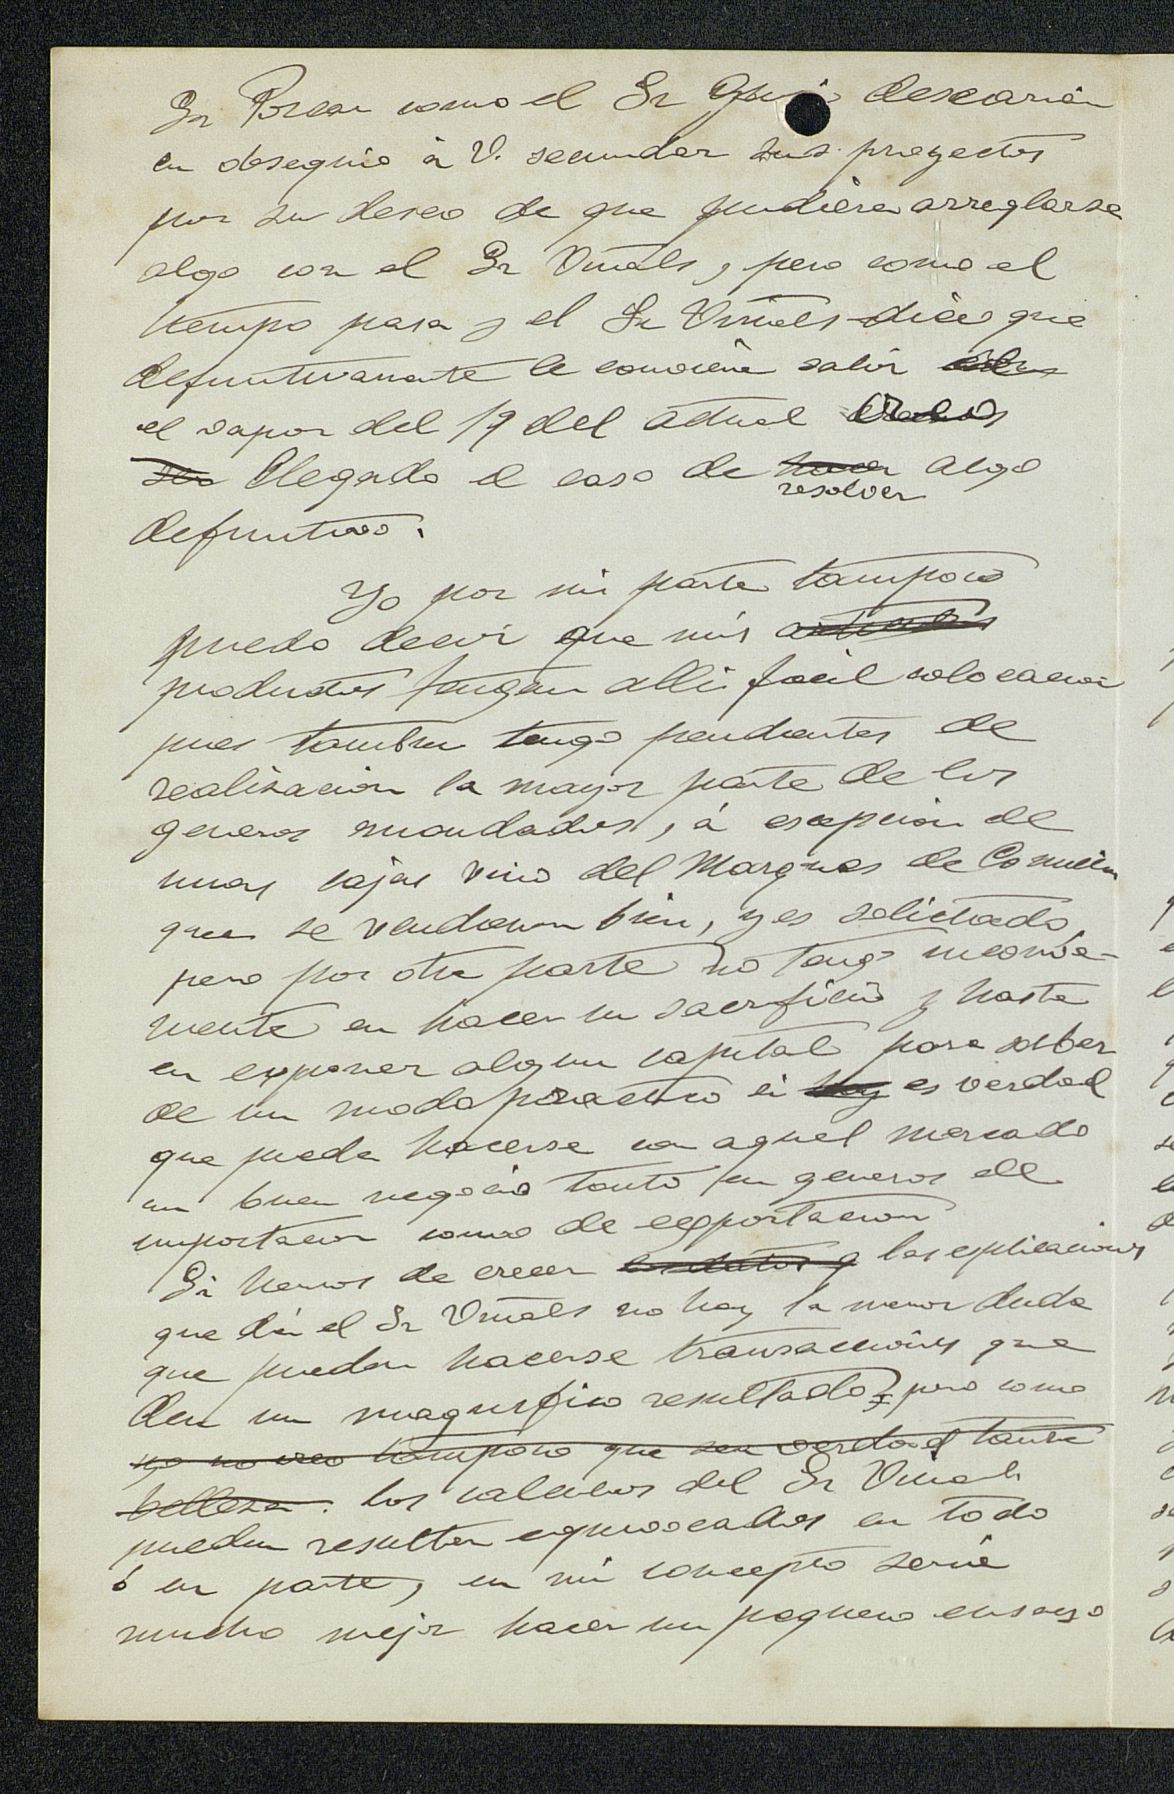 Sr Porcar como el Sr desearian
en obsequio á V. secundar sus proyectos
por su deseo de que pudiera arreglarse
algo con el Sr Viñals, pero como el
tiempo pasa y el Sr Viñals dice que
definitivamente le conviene salir
el vapor del 19 del actual
llegado el caso de hacer algo
resolver
definitivo.
Yo por mi parte tampoco
puedo decir que mis
productos tengan alli facil colocacion
pues tambien tengo pendientes de
realizacion la mayor parte de los
generos mandados, á escepcion de
unas cajas vino del Marques de Comillas
que se vendieron bien, y es solicitado
pero por otra parte no tengo inconve-
niente en hacer un sacrificio y hasta
en exponer algun capital para saber
de un modo practico si hay es verdad
que puede hacerse con aquel mercado
un buen negocio tanto en generos de
importacion como de exportacion
Si hemos de creer los datos y las esplicaciones
que dá el Sr Viñals no hay la menor duda
que pueden hacerse transacciones que
den un magnifico resultado, pero como
yo no creo tampoco que sea verdad tanta
belleza. los calculos del Sr Viñals
pueden resultar equivocados en todo
ó en parte, en mi concepto seria
mucho mejor hacer un pequeno ensayo